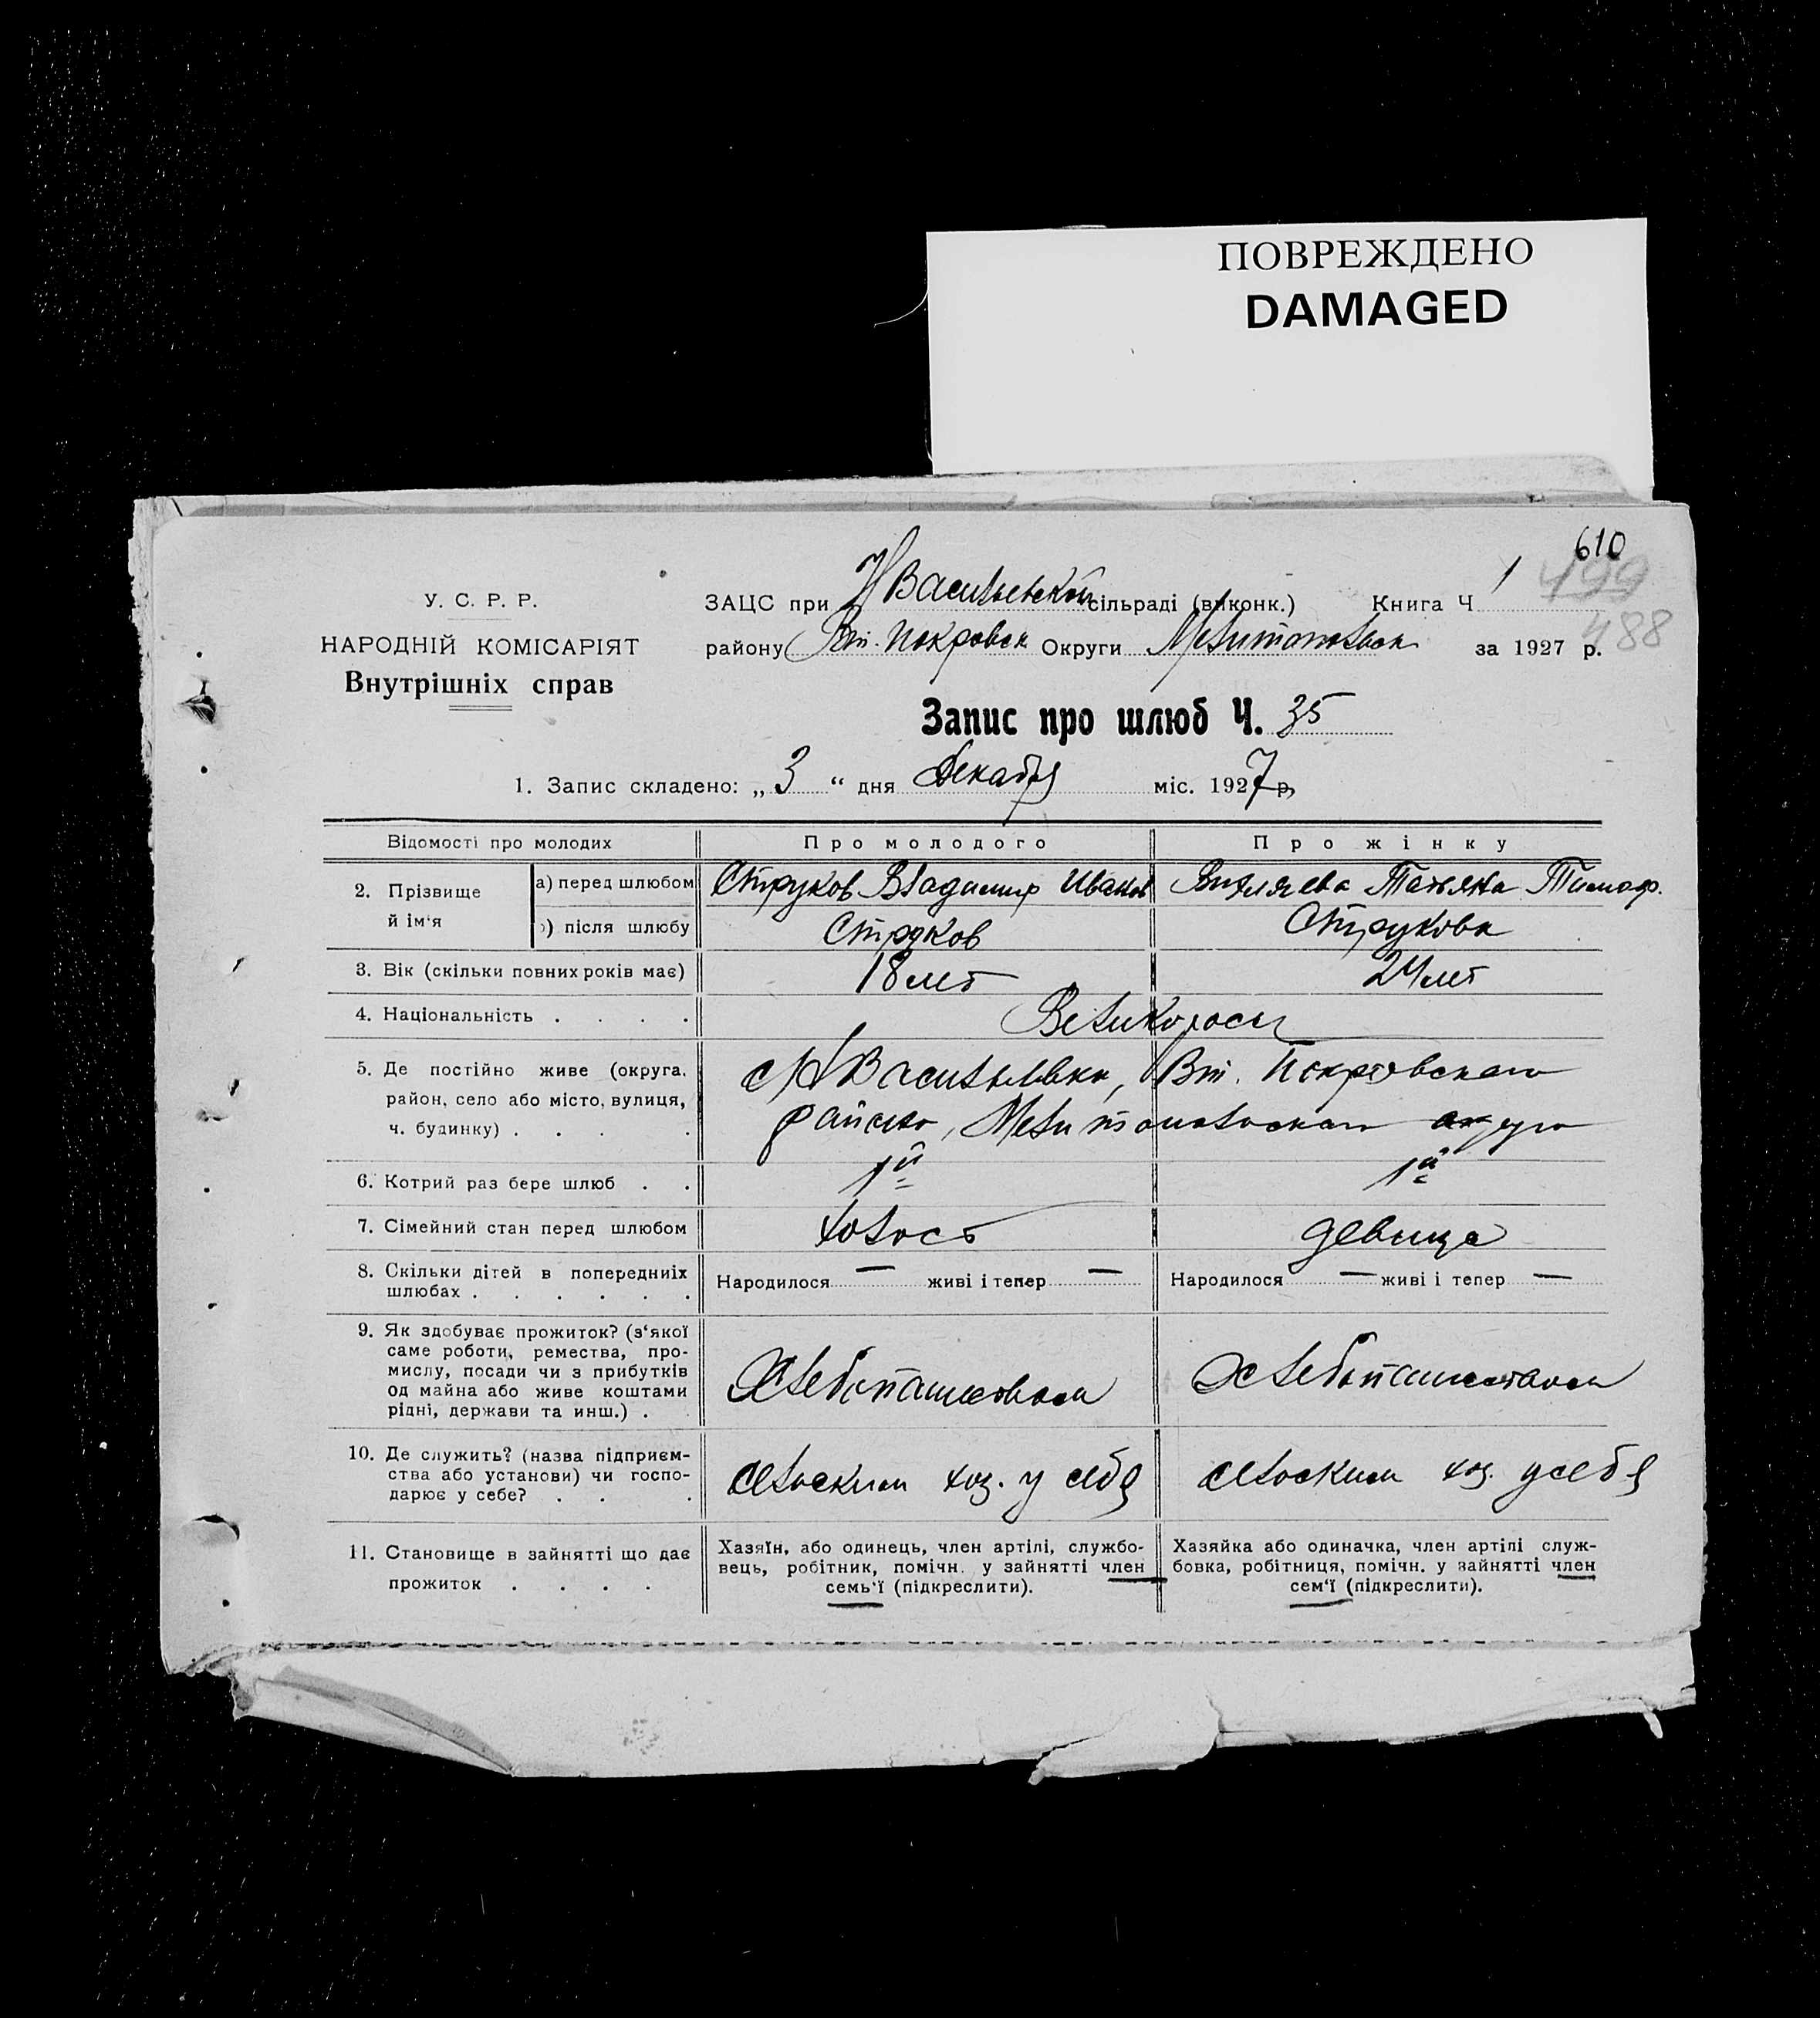 ПОВРЕЖДЕНО
DAMAGED
610
499
488
У. С. Р. Р.
НАРОДНІЙ КОМІСАРІЯТ
Внутрішніх справ
ЗАЦС при Н Васильевской сільраді (виконк.) Книга Ч 1
району Вт. Покровск Округи Мелитопольск за 1927 р.
Запис про шлюб Ч. 35
1. Запис складено: „ 3 “ дня Декабря міс. 1927 р.
Відомості про молодих
Про молодого
Про жінку
2. Прізвище й ім‘я
а) перед шлюбом
Струков Владимир Иванов
Татьяна Тимоф.
) після шлюбу
Струков
Струкова
3. Вік (скільки повних років має)
18 лет
24 лет
4. Національність . . . .
Великороссы
5. Де постійно живе (округа,
район, село або місто, вулиця,
ч. будинку) . . . .
с Н Васильевка, Вт. Покровского
района, Мелитопольского
6. Котрий раз бере шлюб . .
1й
1й
7. Сімейний стан перед шлюбом
холост
девица
8. Скільки дітей в попередниіх
шлюбах . . . . . .
Народилося — живі і тепер —
Народилося — живі і тепер —
9. Як здобуває прожиток? (з‘якої
саме роботи, ремества, про-
мислу, посади чи з прибутків
од майна або живе коштами
рідні, держави та инш.) . .
Хлебопашеством
Хлебопашеством
10. Де служить? (назва підприєм-
ства або установи) чи госпо-
дарює у себе? . . .
сельским хоз. у себя
сельским хоз. у себя
11. Становище в зайнятті що дає
прожиток . . . .
Хазяїн, або одинець, член артілі, службо-
вець, робітник, помічн. у зайнятті член
семь‘ї (підкреслити).
Хазяйка або одиначка, член артілі служ-
бовка, робітниця, помічн. у зайнятті член
сем‘ї (підкреслити).